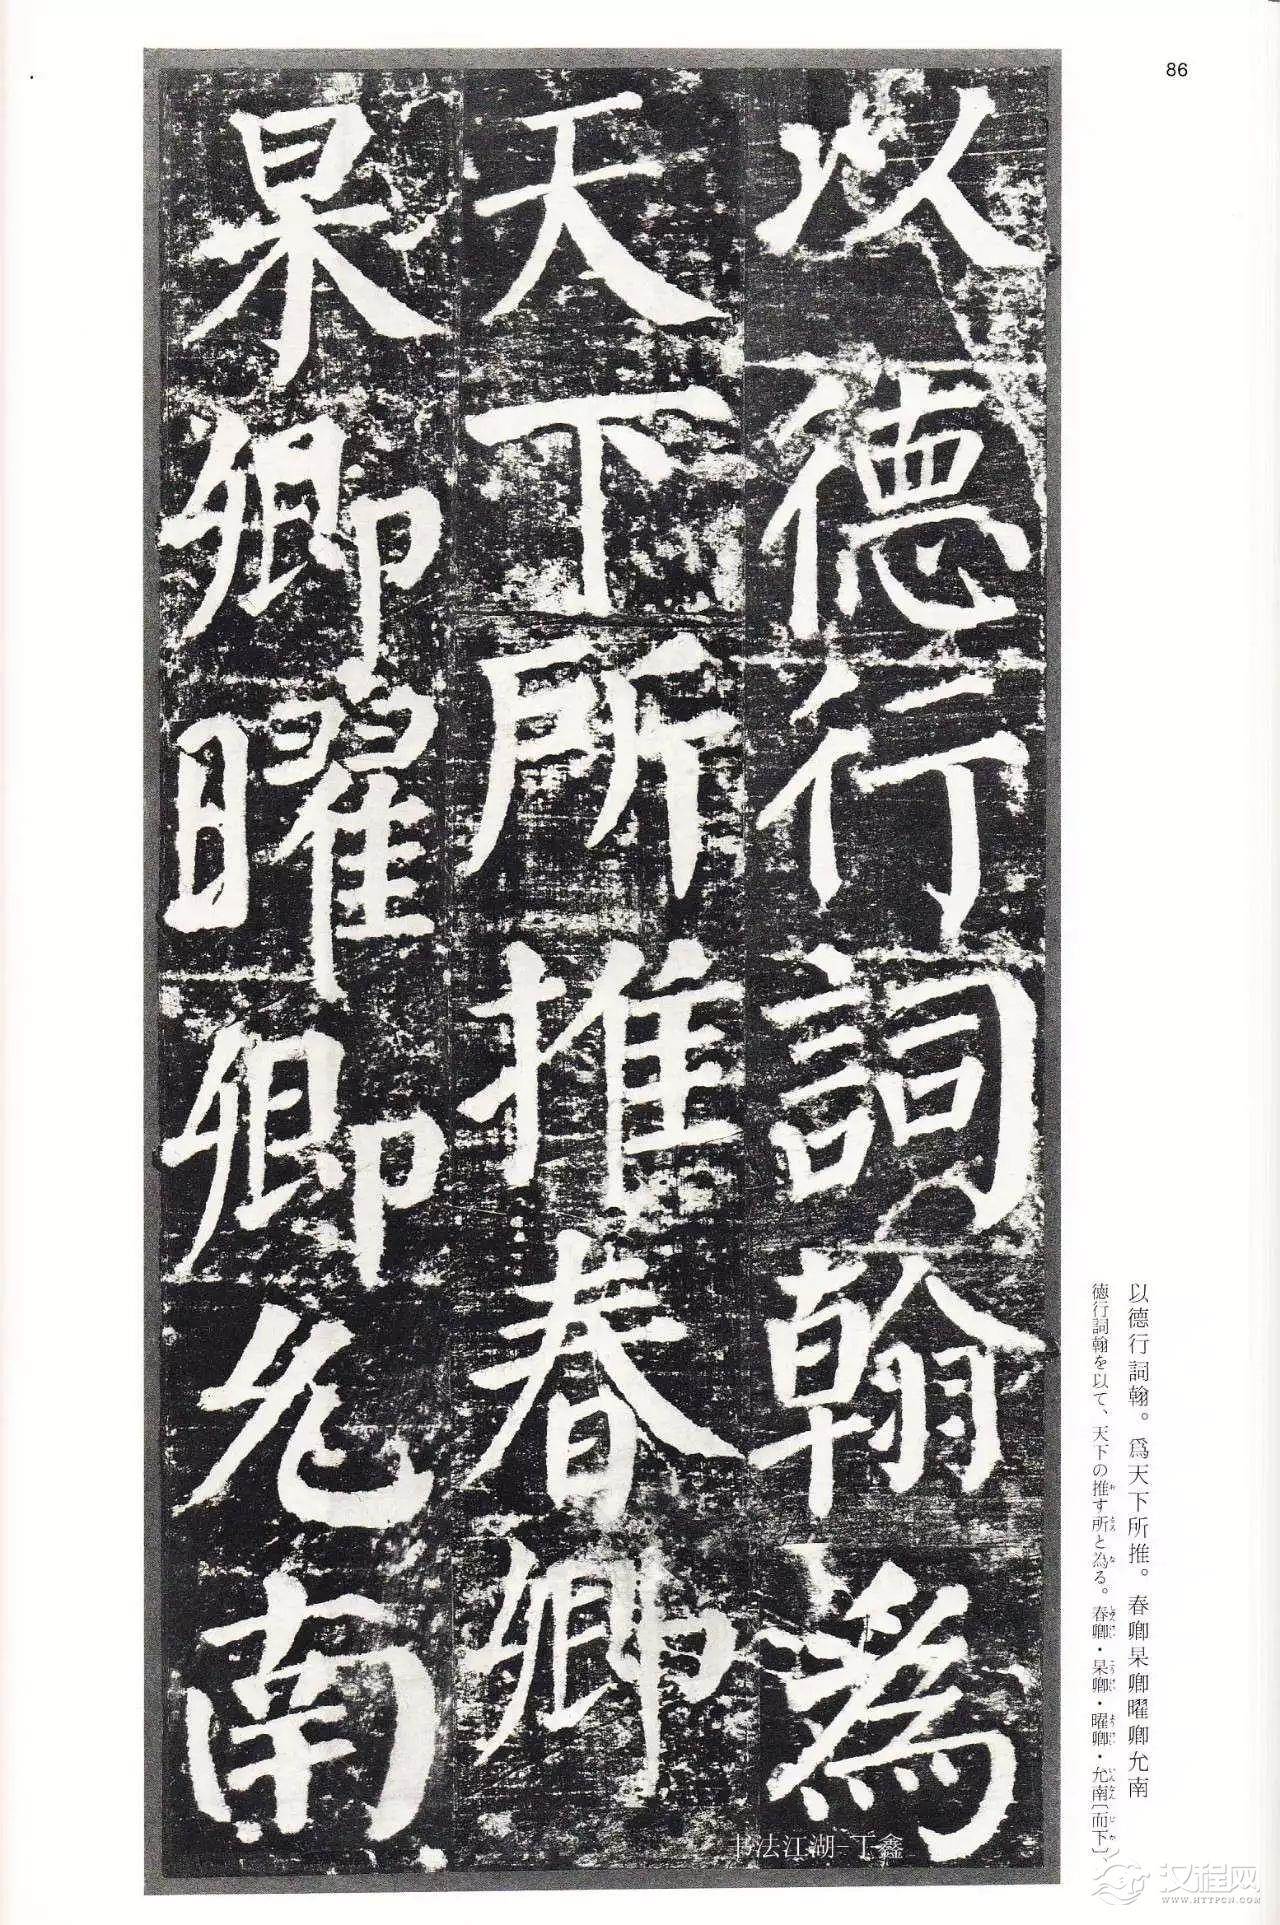 86
以德行詞翰為
天下所推春卿
杲卿曜卿允南
以德行詞翰。爲天下所推。春卿杲卿曜卿允南
徳行詞翰を以て、天下の推す所と為る。春卿・杲卿・曜卿・允南〔而下〕
书法江湖-丁鑫
汉程网
WWW.HTTPCN.COM